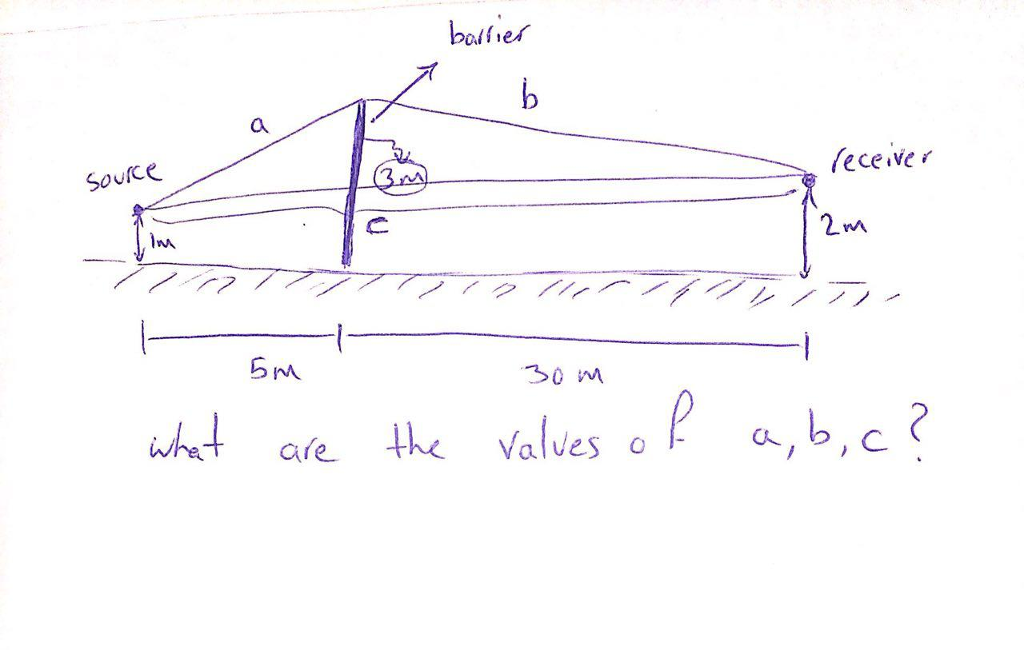 barrier
b
a
source
receiver
3m
1m
c
2m
5m
30m
what are the values of a, b, c?